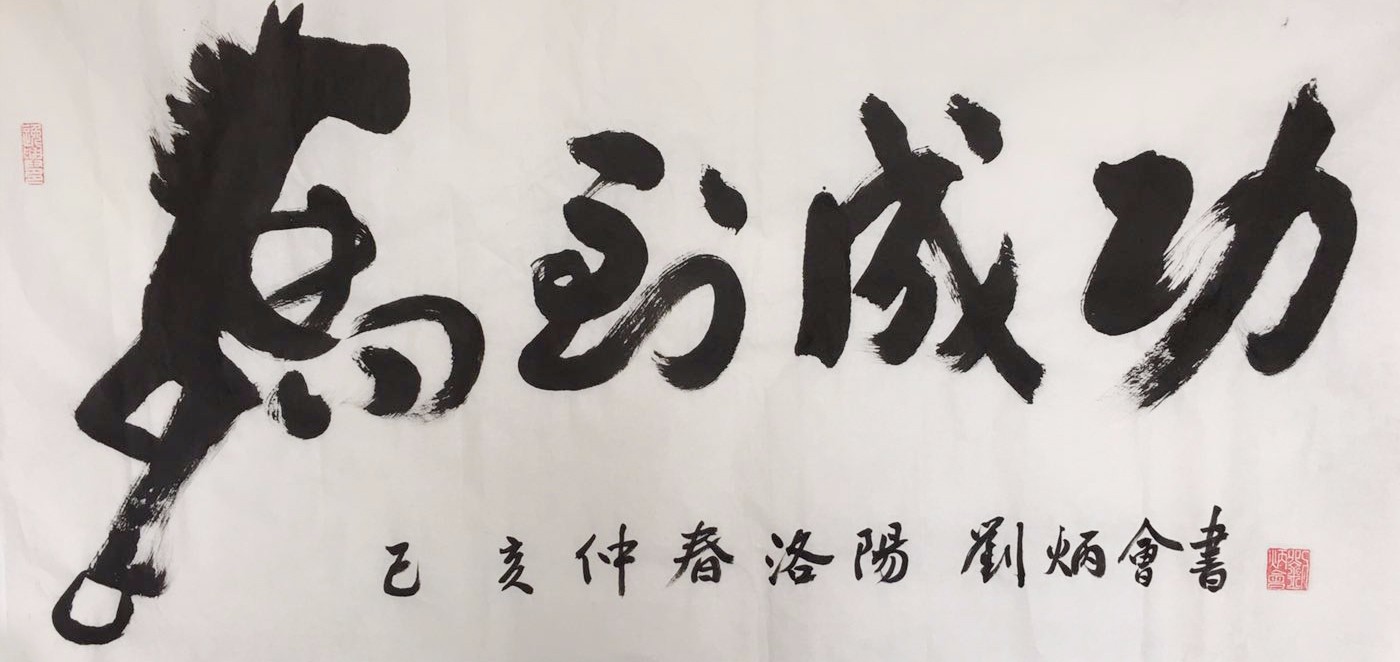 馬到成功
己亥仲春洛陽 劉炳會書